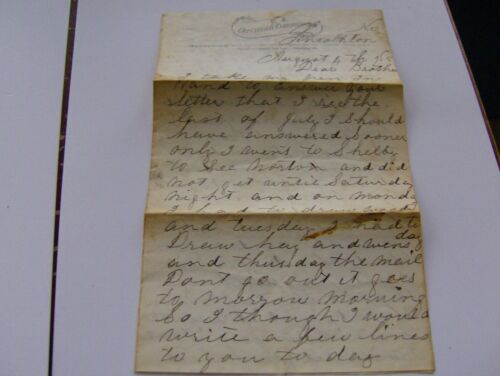 August 4 th 95
Dear Brother
I take my pen in
Hand to answer your
letter that I recd the
last of July I should
have answered sooner
only I went to Shelby
to see Morton and did
not get until Saturday
night and on Mond
and tuesday I had to
Draw hay and wens day
and thursday the mail
Dont go out it goes
to morrow morning
So I though I would
write a few lines
to you to day